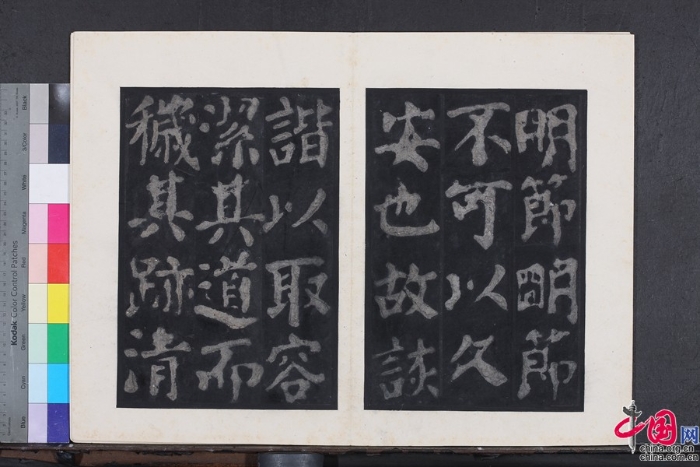 明節明節
不可以久
安也故詼
諧以取容
潔其道而
穢其跡清
Kodak Color Control Patches
Blue
Cyan
Green
Yellow
Red
Magenta
White
3/Color
Black
中国网
china.org.cn
china.com.cn